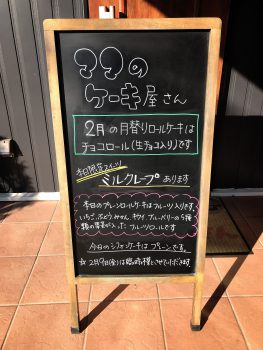 ママの
ケーキ屋さん
2月の月替りロールケーキは
チョコロール(生チョコ入り)です
本日限定スイーツ
ミルクレープあります
本日のプレーンロールケーキはフルーツ入りです。
いちご、ぶどう、みかん、キウイ、ブルーベリーの5種
類の果実が入ったフルーツロールです
今日のシフォンケーキはプレーンです。
☆2月9日(金)は臨時休業とさせていただきます